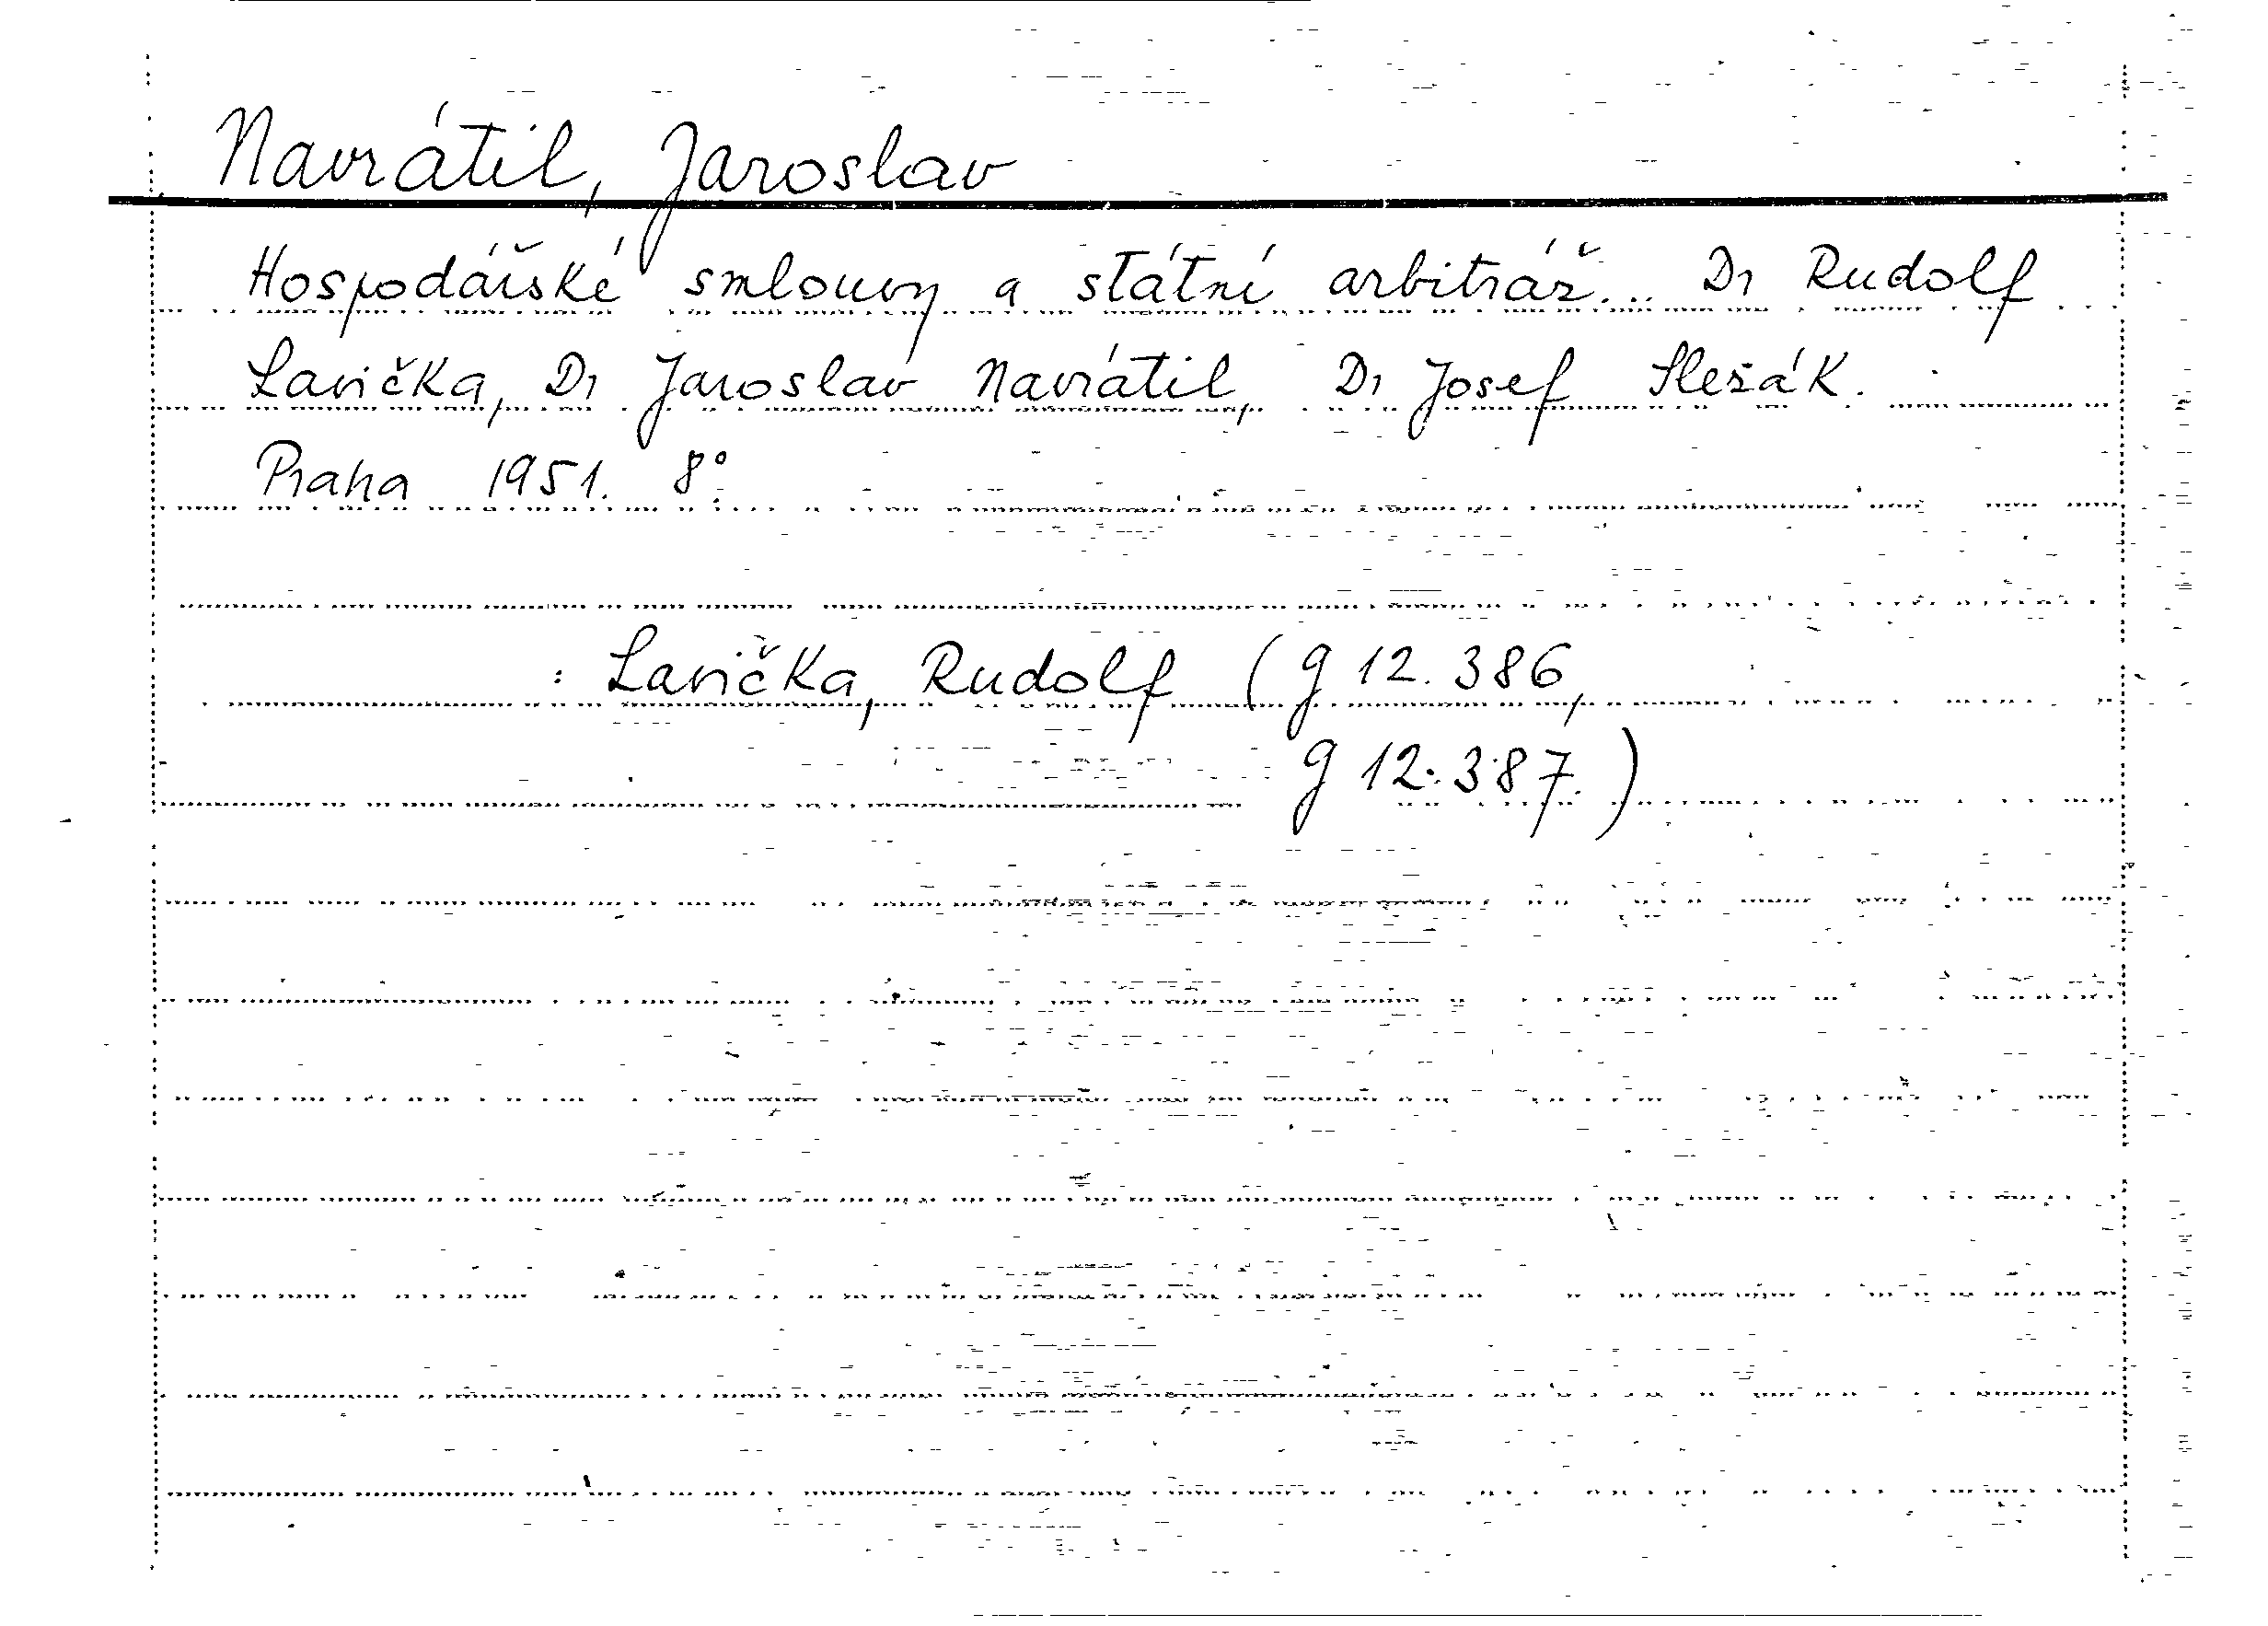 Navrátil, Jaroslav
Hospodářské smlouvy a státní arbitráž... Dr Rudolf
Lavička, Dr Jaroslav Navrátil, Dr Josef Slezák.
Praha 1951. 8°.
: Lavička, Rudolf (g 12.386,
g 12.387.)